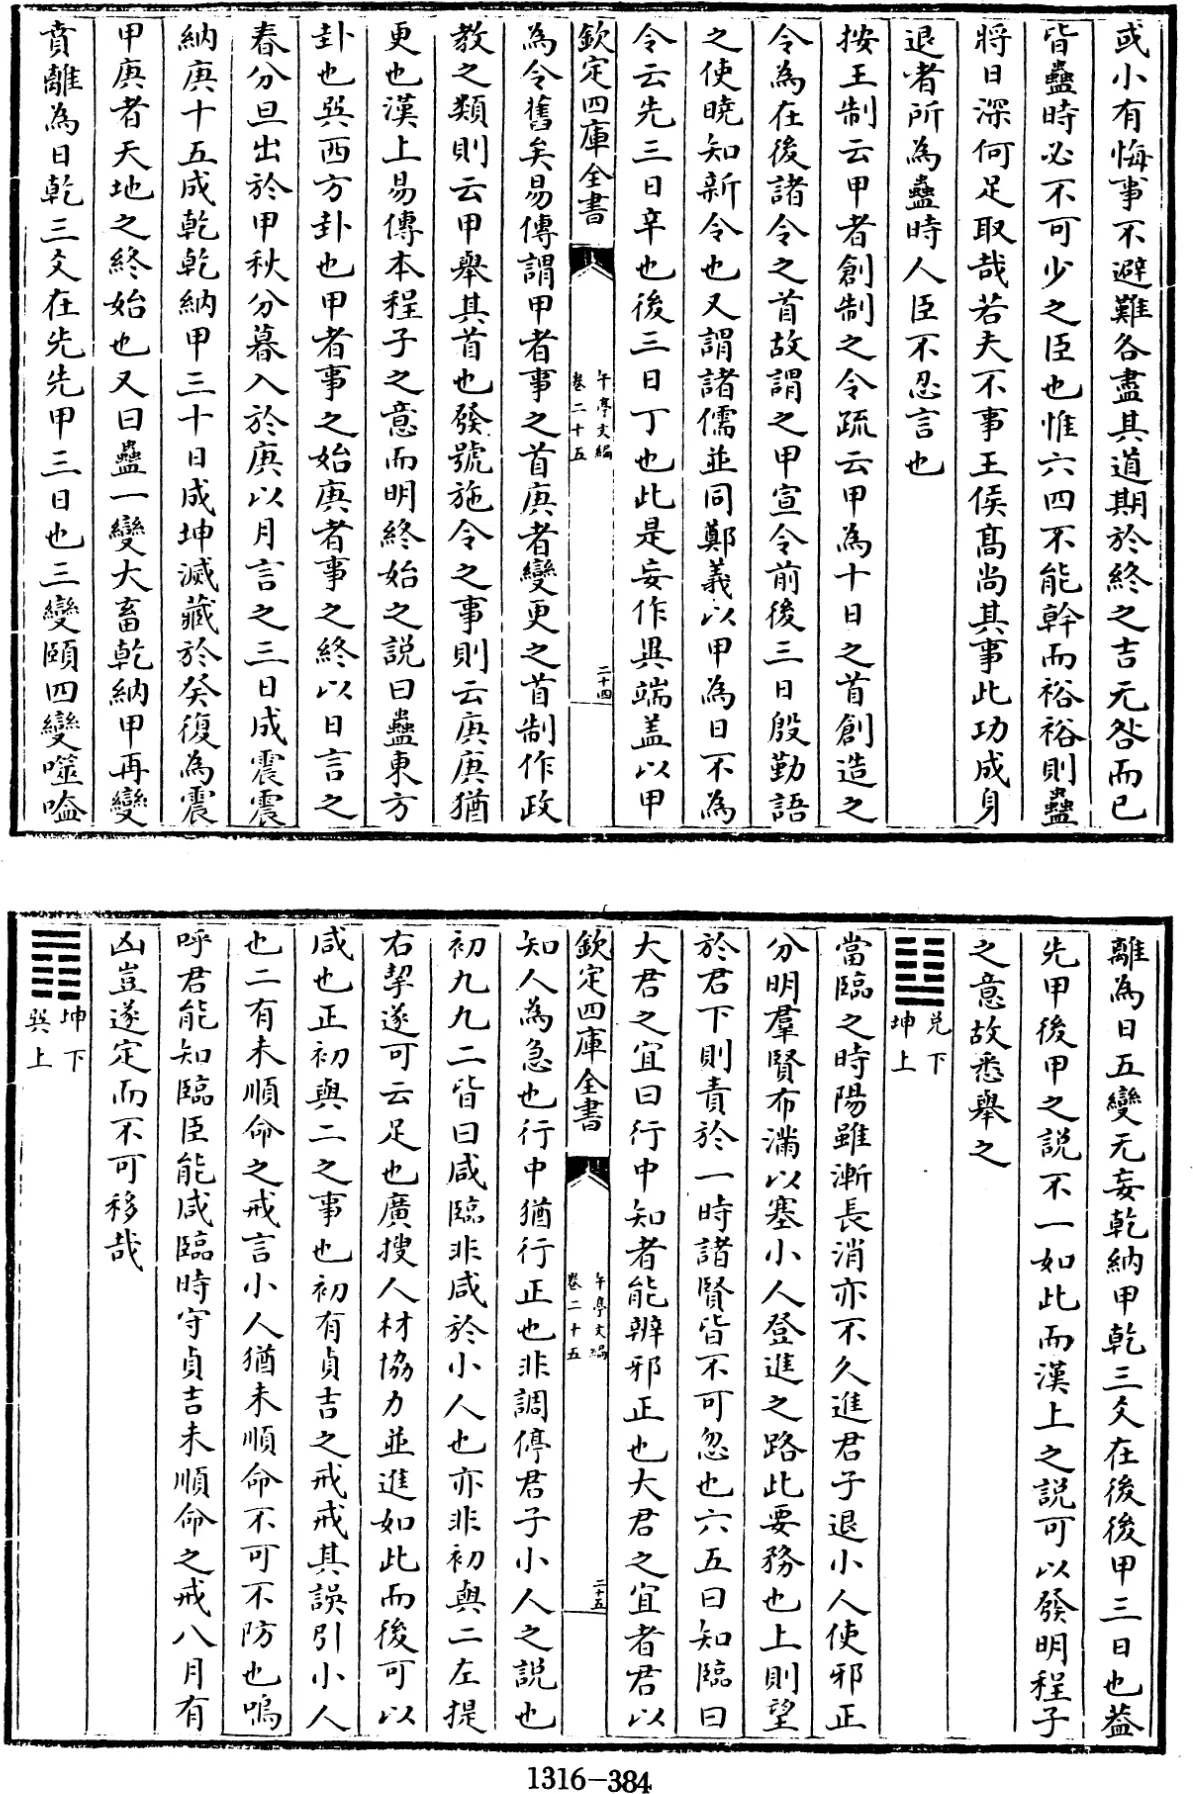 或小有悔事不避難各盡其道期於終之吉无咎而已
皆蠱時必不可少之臣也惟六四不能幹而裕裕則蠱
將日深何足取哉若夫不事王侯髙尚其事此功成身
退者所為蠱時人臣不忍言也
按王制云甲者創制之令疏云甲為十日之首創造之
令為在後諸令之首故謂之甲宣令前後三日殷勤語
之使曉知新令也又謂諸儒並同鄭義以甲為日不為
令云先三日辛也後三日丁也此是妄作異端盖以甲
欽定四庫全書
午亭文編
卷二十五
二十四
為令舊矣易傳謂甲者事之首庚者變更之首制作政
教之類則云甲舉其首也發號施令之事則云庚庚猶
更也漢上易傳本程子之意而明終始之説曰蠱東方
卦也巽西方卦也甲者事之始庚者事之終以日言之
春分旦出於甲秋分暮入於庚以月言之三日成震震
納庚十五成乾乾納甲三十日成坤滅藏於癸復為震
甲庚者天地之終始也又曰蠱一變大畜乾納甲再變
賁離為日乾三爻在先先甲三日也三變頤四變噬嗑
離為日五變无妄乾納甲乾三爻在後後甲三日也葢
先甲後甲之説不一如此而漢上之説可以發明程子
之意故悉舉之
䷒
兌下
坤上
當臨之時陽雖漸長消亦不久進君子退小人使邪正
分明羣賢布滿以塞小人登進之路此要務也上則望
於君下則責於一時諸賢皆不可忽也六五曰知臨曰
大君之宜曰行中知者能辨邪正也大君之宜者君以
欽定四庫全書
午亭文編
卷二十五
二十五
知人為急也行中猶行正也非調停君子小人之説也
初九九二皆曰咸臨非咸於小人也亦非初與二左提
右挈遂可云足也廣搜人材協力並進如此而後可以
咸也正初與二之事也初有貞吉之戒戒其誤引小人
也二有未順命之戒言小人猶未順命不可不防也嗚
呼君能知臨臣能咸臨時守貞吉未順命之戒八月有
凶豈遂定而不可移哉
䷓
坤下
巽上
1316-384